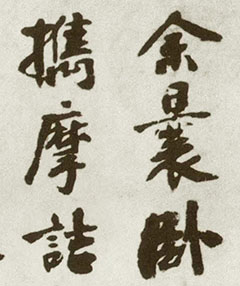 余曩卧
攜摩詰